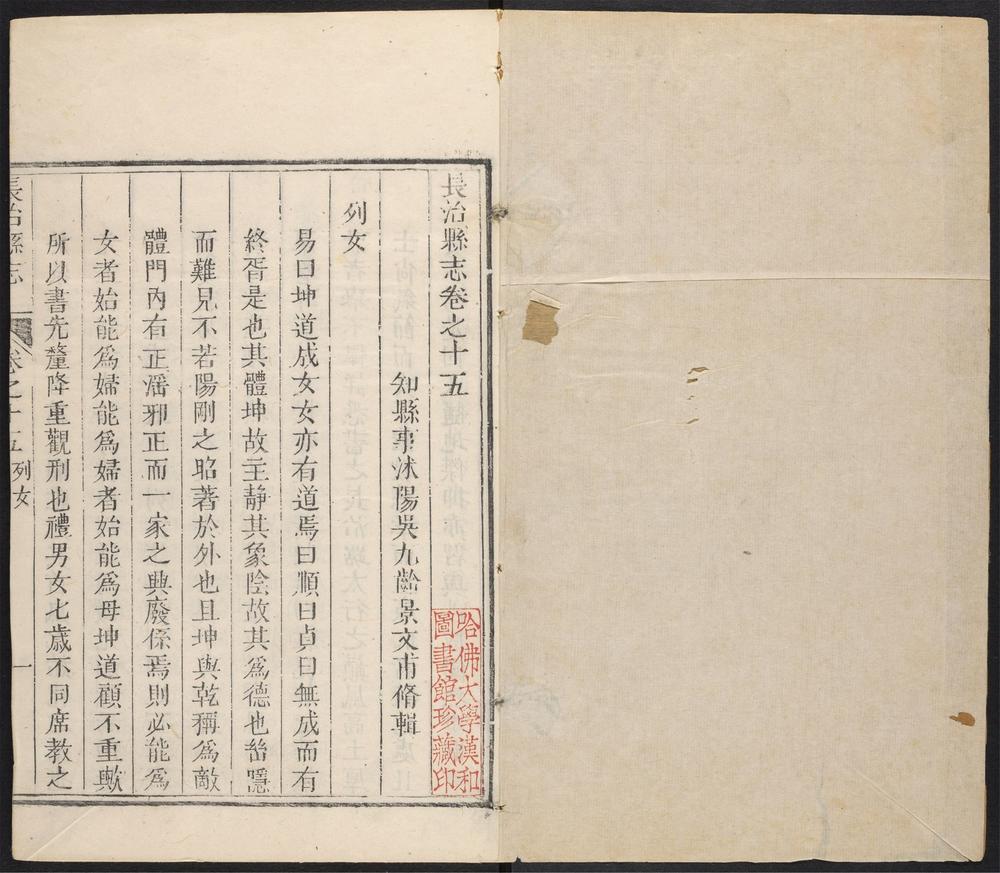 長治縣志卷之十五
知縣事沭陽吳九齡景文甫脩輯
列女
易曰坤道成女女亦有道焉曰順曰貞曰無成而有
終胥是也其體坤故主靜其象陰故其爲德也幽隱
而難見不若陽剛之昭著於外也且坤與乾稱爲敵
體門內有正滛邪正而一家之興廢係焉則必能爲
女者始能爲婦能爲婦者始能爲母坤道顧不重歟
所以書先釐降重觀刑也禮男女七歲不同席教之
長治縣志
卷之十五
列女
一
哈佛大學漢和
圖書館珍藏印